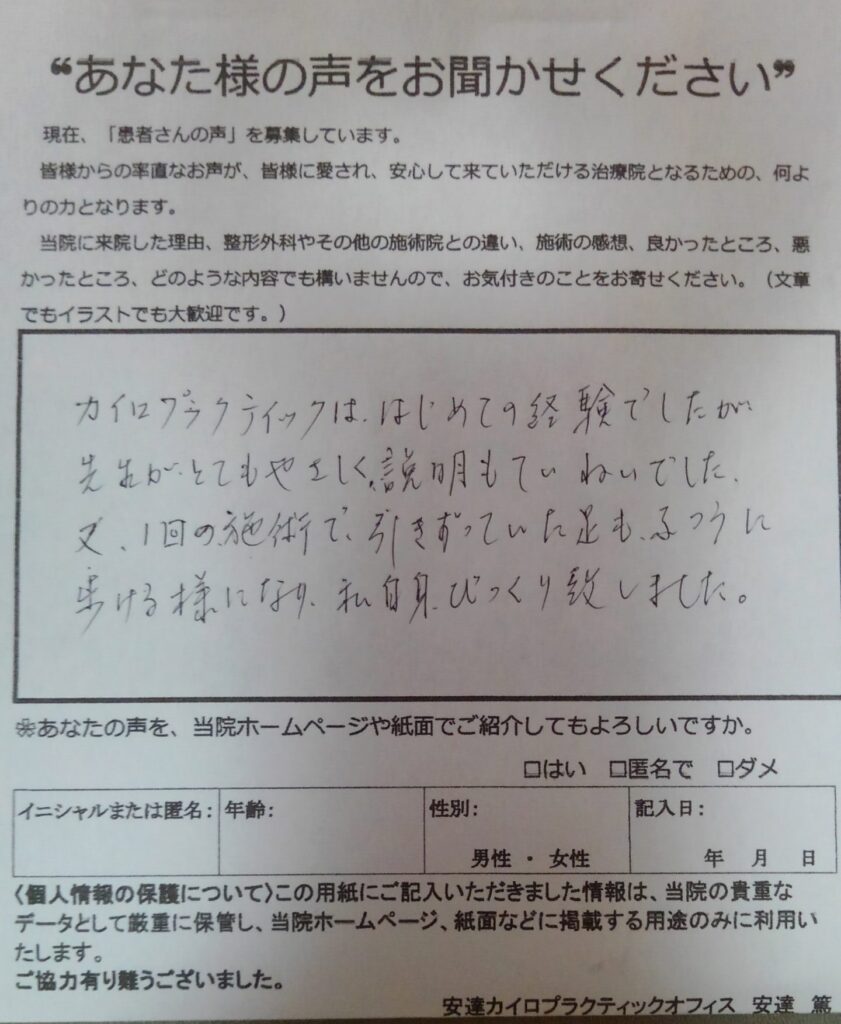 “あなた様の声をお聞かせください”
現在、「患者さんの声」を募集しています。
皆様からの率直なお声が、皆様に愛され、安心して来ていただける治療院となるための、何よ
りの力となります。
当院に来院した理由、整形外科やその他の施術院との違い、施術の感想、良かったところ、悪
かったところ、どのような内容でも構いませんので、お気付きのことをお寄せください。（文章
でもイラストでも大歓迎です。）
カイロプラクティックは、はじめての経験でしたが
先生がとてもやさしく、説明もていねいでした、
又、1回の施術で、引きずっていた足も、ふつうに
歩ける様になり、私自身、びっくり致しました。
※あなたの声を、当院ホームページや紙面でご紹介してもよろしいですか。
□はい □匿名で □ダメ
イニシャルまたは匿名： 年齢： 性別： 記入日：
男性 ・ 女性 年 月 日
〈個人情報の保護について〉この用紙にご記入いただきました情報は、当院の貴重な
データとして厳重に保管し、当院ホームページ、紙面などに掲載する用途のみに利用い
たします。
ご協力有り難うございました。
安達カイロプラクティックオフィス 安達 篤